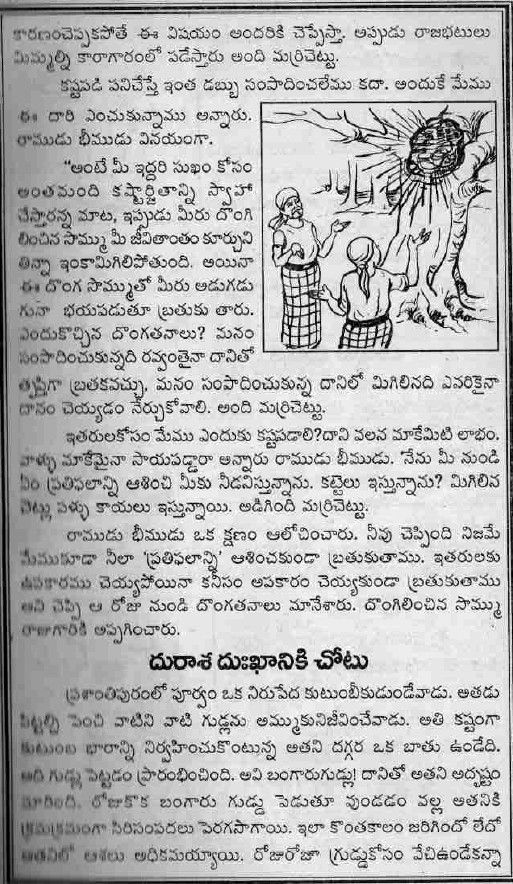 కారణంచెప్పకపోతే ఈ విషయం అందరికి చెప్పేస్తా. అప్పుడు రాజభటులు
మిమ్మల్ని కారాగారంలో పడేస్తారు అంది మర్రిచెట్టు.
కష్టపడి పనిచేస్తే ఇంత డబ్బు సంపాదించలేము కదా. అందుకే మేము
ఈ దారి ఎంచుకున్నాము అన్నారు.
రాముడు భీముడు వినయంగా.
"అంటే మీ ఇద్దరి సుఖం కోసం
అంతమంది కష్టార్జితాన్ని స్వాహా
చేస్తారన్న మాట, ఇప్పుడు మీరు దొంగి
లించిన సొమ్ము మీ జీవితాంతం కూర్చుని
తిన్నా ఇంకామిగిలిపోతుంది. అయినా
ఈ దొంగ సొమ్ముతో మీరు అడుగడు
గునా భయపడుతూ బ్రతుకు తారు.
ఎందుకొచ్చిన దొంగతనాలు? మనం
సంపాదించుకున్నది రవ్వంతైనా దానితో
తృప్తిగా బ్రతకవచ్చు, మనం సంపాదించుకున్న దానిలో మిగిలినది ఎవరికైనా
దానం చెయ్యడం నేర్చుకోవాలి. అంది మర్రిచెట్టు.
ఇతరులకోసం మేము ఎందుకు కష్టపడాలి?దాని వలన మాకేమిటి లాభం.
వాళ్ళు మాకేమైనా సాయపడ్డారా అన్నారు రాముడు భీముడు. 'నేను మీ నుండి
ఏం ప్రతిఫలాన్ని ఆశించి మీకు నీడనిస్తున్నాను. కట్టెలు ఇస్తున్నాను? మిగిలిన
చెట్లు పళ్ళు కాయలు ఇస్తున్నాయి. అడిగింది మర్రిచెట్టు.
రాముడు భీముడు ఒక క్షణం ఆలోచించారు. నీవు చెప్పింది నిజమే
మేముకూడా నీలా 'ప్రతిఫలాన్ని' ఆశించకుండా బ్రతుకుతాము. ఇతరులకు
ఉపకారము చెయ్యపోయినా కనీసం అపకారం చెయ్యకుండా బ్రతుకుతాము
అని చెప్పి ఆ రోజు నుండి దొంగతనాలు మానేశారు. దొంగిలించిన సొమ్ము
రాజుగారికి అప్పగించారు.
దురాశ దుఃఖానికి చోటు
ప్రశాంతిపురంలో పూర్వం ఒక నిరుపేద కుటుంబీకుడుండేవాడు. అతడు
పిట్టల్ని పెంచి వాటిని వాటి గుడ్లను అమ్ముకునిజీవించేవాడు. అతి కష్టంగా
కుటుంబ భారాన్ని నిర్వహించుకొంటున్న అతని దగ్గర ఒక బాతు ఉండేది.
అది గుడ్లు పెట్టడం ప్రారంభించింది. అవి బంగారుగుడ్లు! దానితో అతని అదృష్టం
మారింది. రోజుకొక బంగారు గుడ్డు పెడుతూ వుండడం వల్ల అతనికి
క్రమక్రమంగా సిరిసంపదలు పెరగసాగాయి. ఇలా కొంతకాలం జరిగిందో లేదో
అతనిలో ఆశలు అధికమయ్యాయి. రోజురోజా గ్రుడ్డుకోసం వేచిఉండేకన్నా